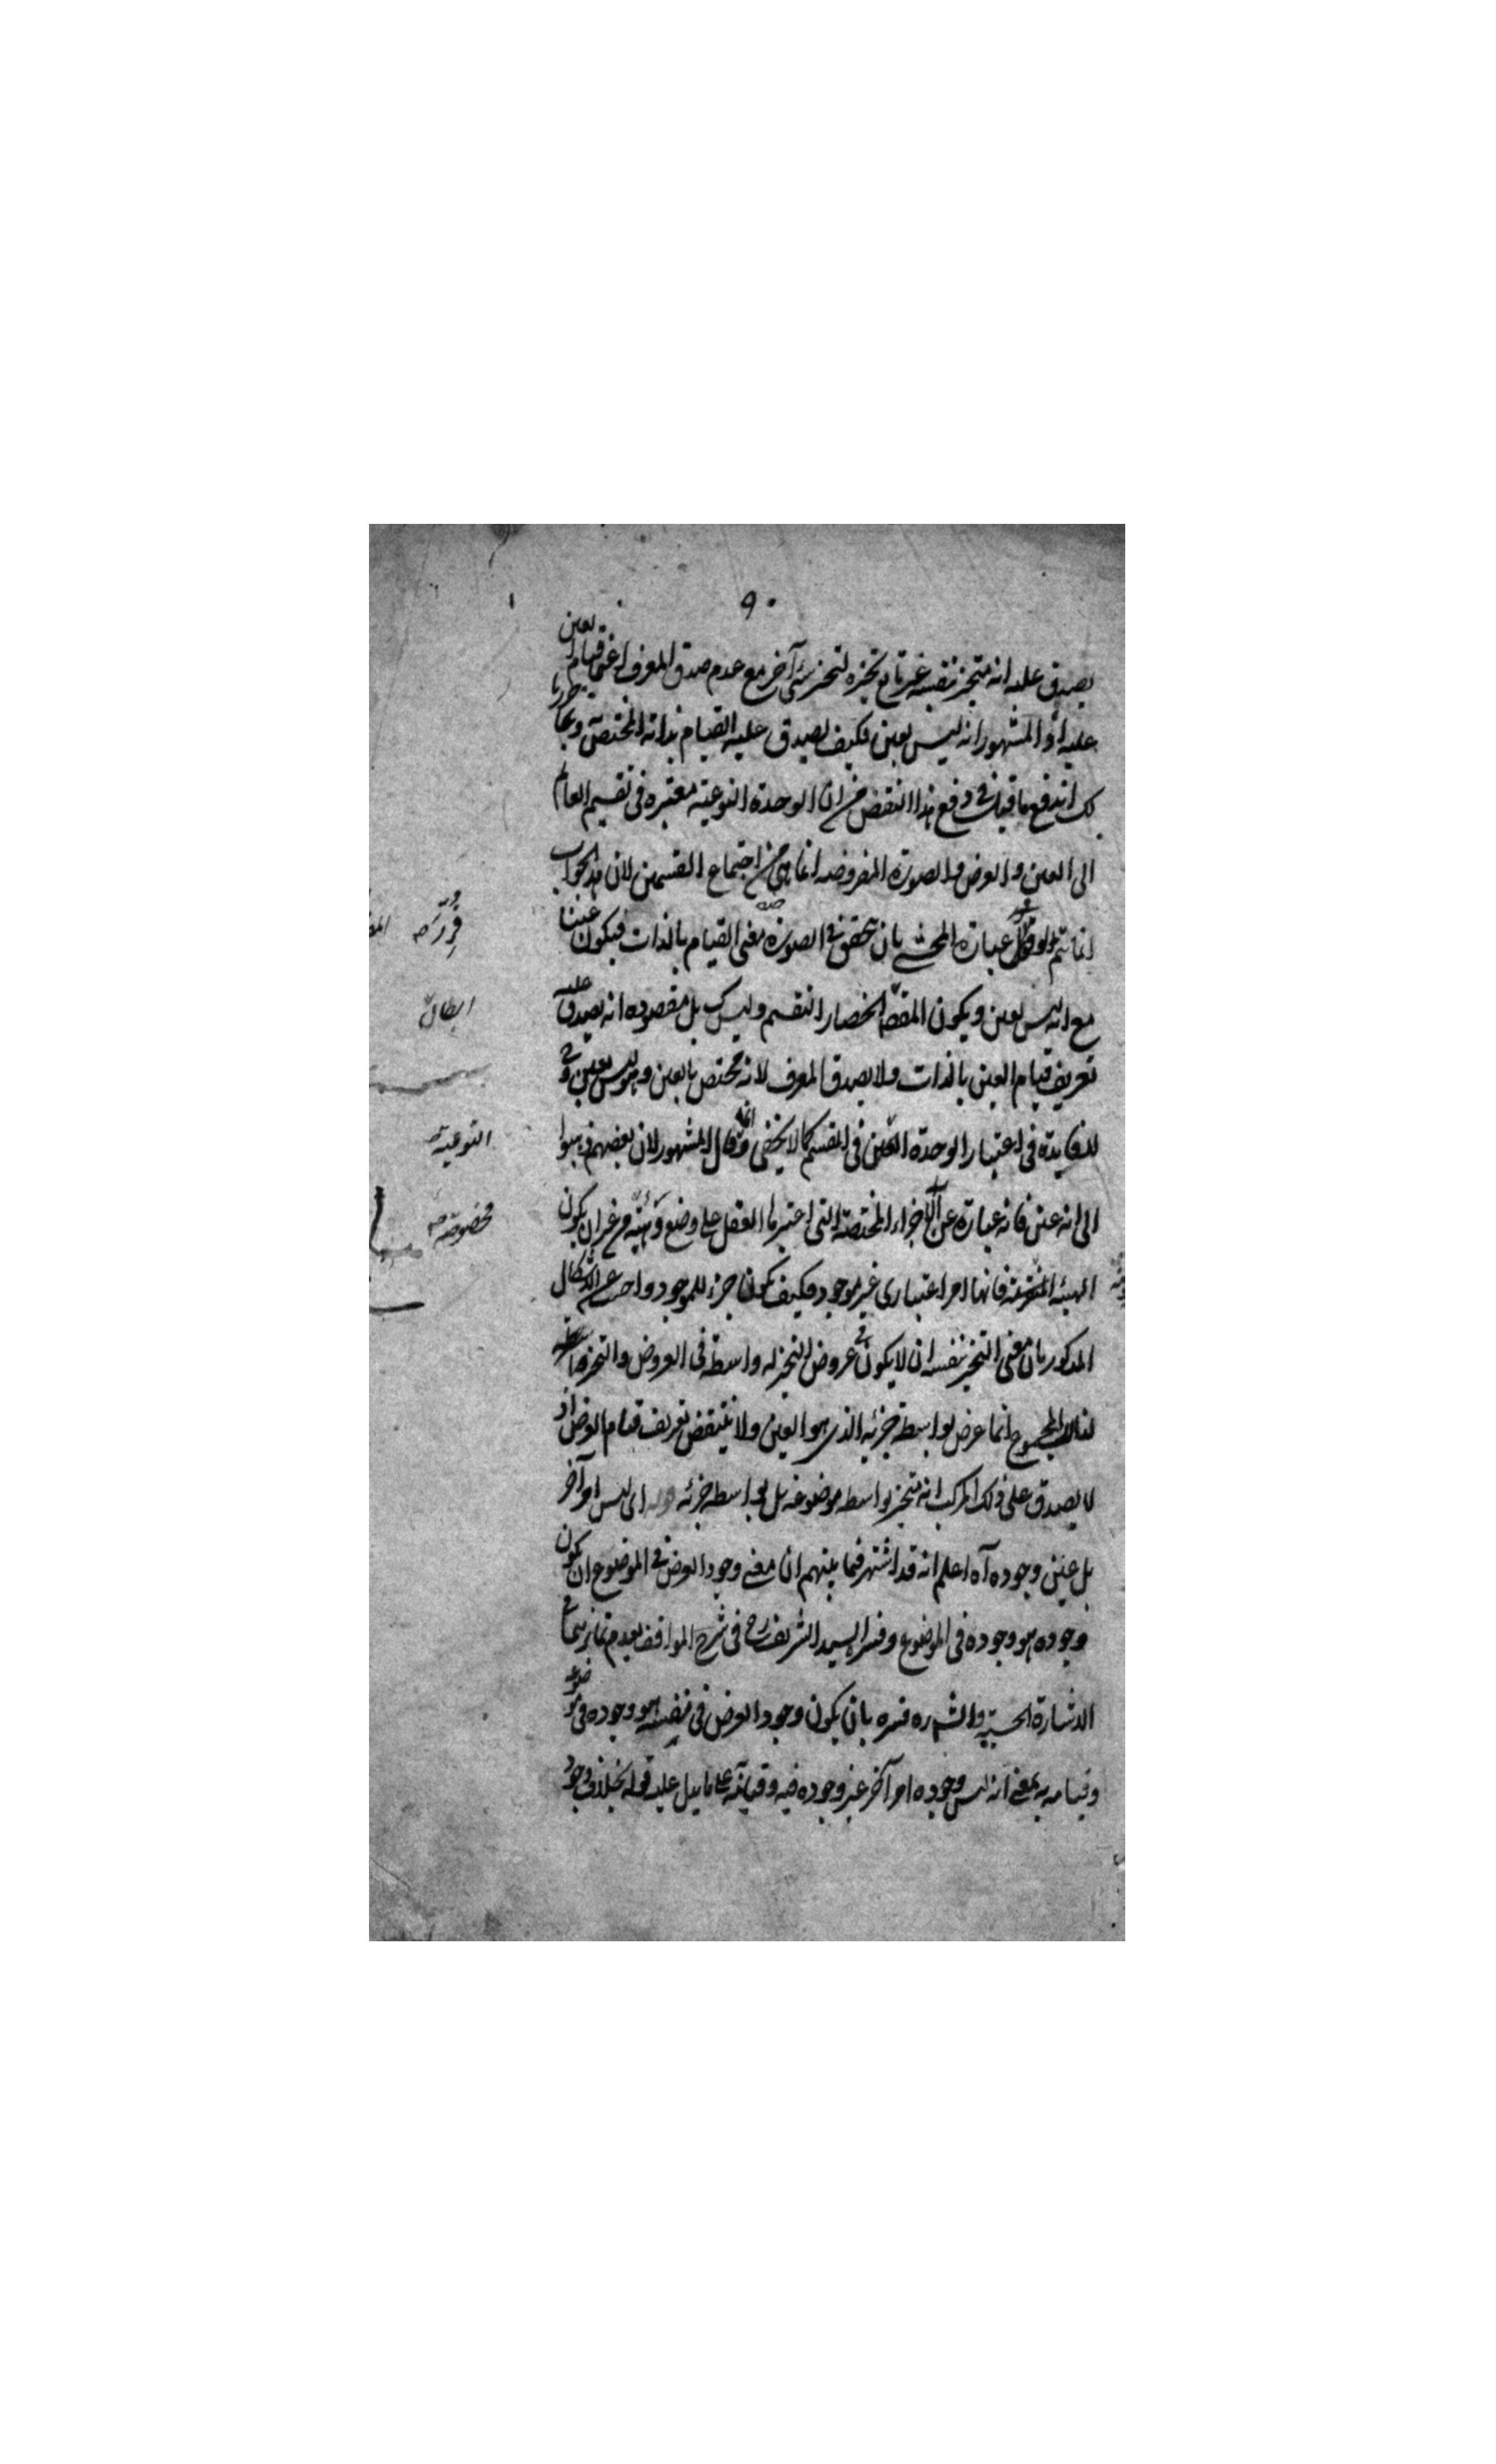 ٩٠
يصدق عليه انه متحيز بنفسه غير تابع تحيزه لتحيز شئ آخر مع عدم صدق المعرف اعنى قيام العين
عليه اذ المشهور انه ليس بعين فكيف يصدق عليه القيام بذاته المختص وبما حررنا
لك اندفع ما قيل فى دفع هذا النقض من ان الوحدة النوعية معتبره فى تقسيم العالم
الى العين والعرض والصورة المفروضه انما هى من اجتماع القسمين لان هذا الجواب
انما يتم لو عبارة المحشى بان تحقق فى الصورة معنى القيام بالذات فيكون عينا
مع انه ليس بعين ويكون المقصد انحصار التقسيم وليس ك بل مقصوده انه يصدق عليه
تعريف قيام العين بالذات ولا يصدق المعرف لانه مختص بالعين وهو ليس بعين وح
لا فايدة فى اعتبار الوحدة فى المقسم كما لا يخفى وانما قال المشهور لان بعضهم ذهبوا
الى انه عين فانه عبارة عن الاجزاء المختصة التى اعتبرها العقل على وضع وهيئة من غير ان يكون
الهيئة فانها امر اعتبارى غير موجود فكيف يكون جزء للموجود واجيب عن الاشكال
المذكور بان معنى التحيز بنفسه ان لا يكون فى عروض التحيز له واسطة فى العروض والتحيز
المجموع انما عرض بواسطة جزئه الذى هو العين ولا ينتقض تعريف قيام العرض اذ
لا يصدق على ذلك المركب انه متحيز بواسطه موضوعه بل بواسطه جزئه قوله اى ليس امر آخر
بل عين وجوده آه اعلم انه قد اشتهر فيما بينهم ان معنى وجود العرض فى الموضوع ان يكون
وجوده هو وجوده فى الموضوع وفسر السيد الشريف رح فى شرح المواقف بعدم تمايزهما فى
الاشارة الحسية والشم ره فسره بان يكون وجود العرض فى نفسه هو وجوده فى موضوعه
وقيامه به بمعنى انه ليس وجوده امر آخر غير وجوده فيه وقيامه على ما يدل عليه قوله بخلاف وجود
ابطال
النوعية
مخصوصة